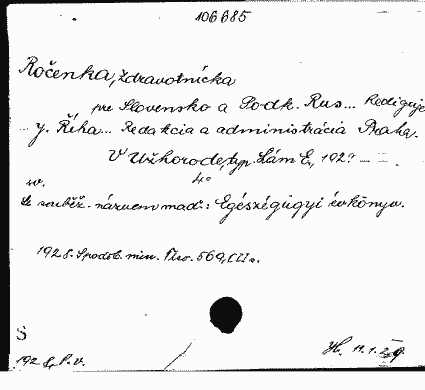 106685
Ročenka, zdravotnícka
pre Slovensko a Podk. Rus... Rediguje
y. Říha... Redakcia a administrácia Praha.
V Užhorode, typ. Lám E, 192?
4°
sv.
Se souběž. názvem maď.: Egészégügyi évkönyv.
1928. Spodob. min. Prov. 569,
S
1928, P. v.
11.1.29.